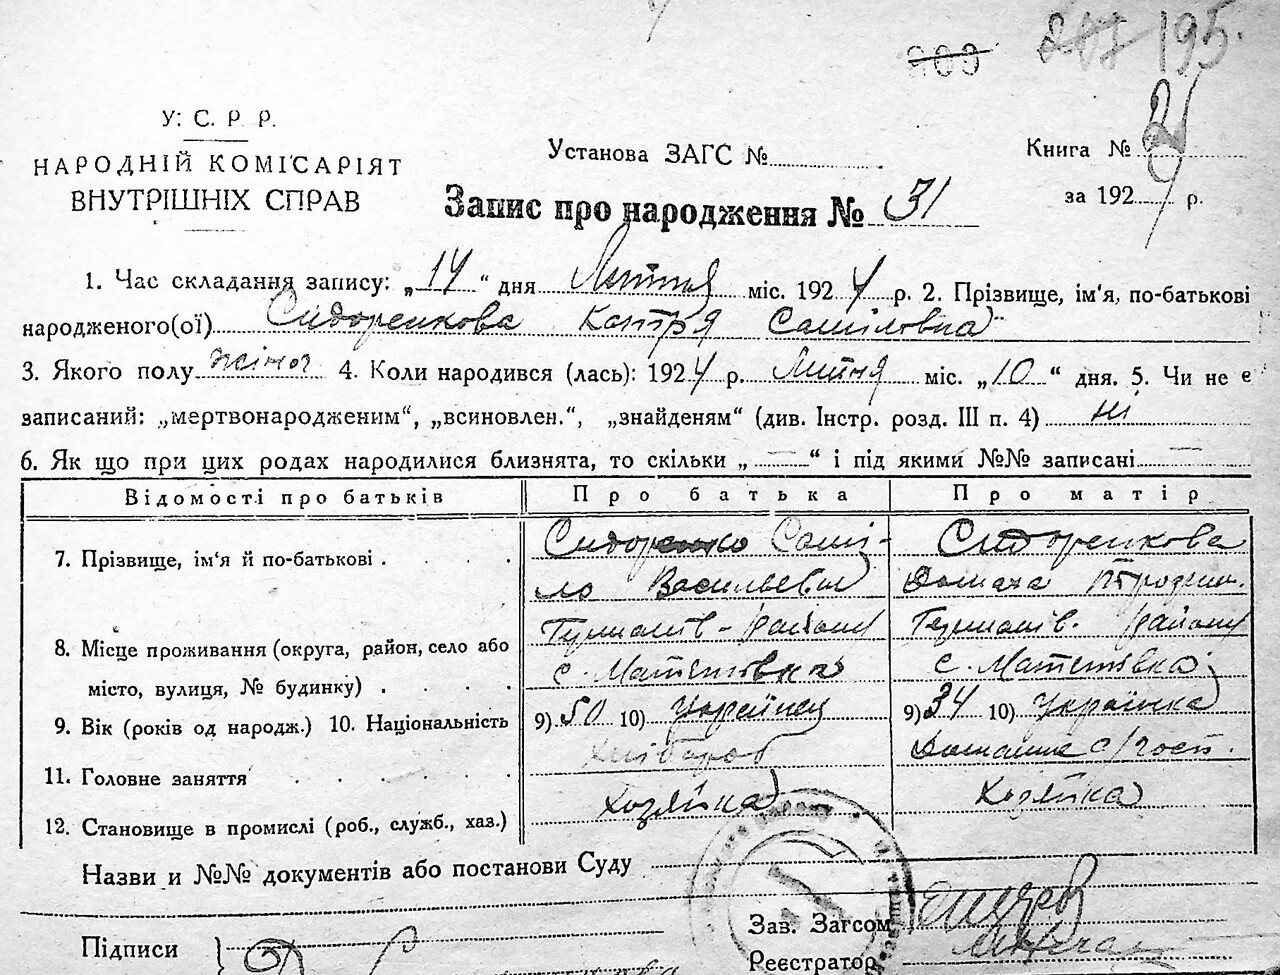 203 195.
У. С. Р. Р.
НАРОДНІЙ КОМІСАРІЯТ
ВНУТРІШНІХ СПРАВ
Установа ЗАГС №
Книга № 2
за 1924 р.
Запис про народження № 31
1. Час складання запису: „14“ дня Лютня міс. 1924 р. 2. Прізвище, ім'я, по-батькові
народженого(ої) Сидоренкова Катря Саміловна
3. Якого полу жіноч 4. Коли народився (лась): 1924 р. Лютня міс. „10“ дня. 5. Чи не є
записаний: „мертвонародженим“, „всиновлен.“, „знайденям“ (див. Інстр. розд. III п. 4) ні
6. Як що при цих родах народилися близнята, то скільки „—“ і під якими №№ записані —
Відомості про батьків Про батька Про матір
7. Прізвище, ім'я й по-батькові . . . Сидоренко Самі-
ло Васильевич
Сидоренкова
Домаха
8. Місце проживання (округа, район, село або
місто, вулиця, № будинку) . . . .
району
с.
району
с.
9. Вік (років од народж.) 10. Національність 9) 50 10) Украінец 9) 34 10) Украінка
11. Головне заняття . . . . . Хлібороб Домашне с/госп.
12. Становище в промислі (роб., служб., хаз.) Хозяйка Хозяйка
Назви и №№ документів або постанови Суду
Підписи
Зав. Загсом
Реєстратор